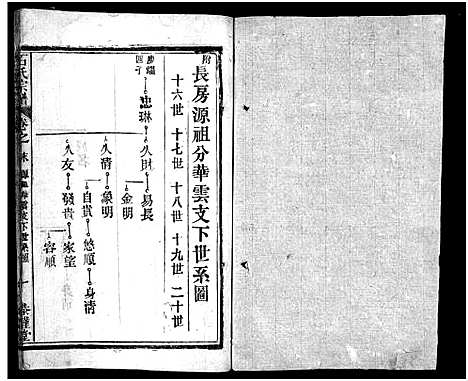 附
長房源祖分華雲支下世系圖
十六世 十七世 十八世 十九世 二十世
四子
忠琳 久財 易長
金明
久清 象明
自貴 悠順 身清
久友 發貴 家望
容順
氏宗譜 卷之 下世系圖 一 堂